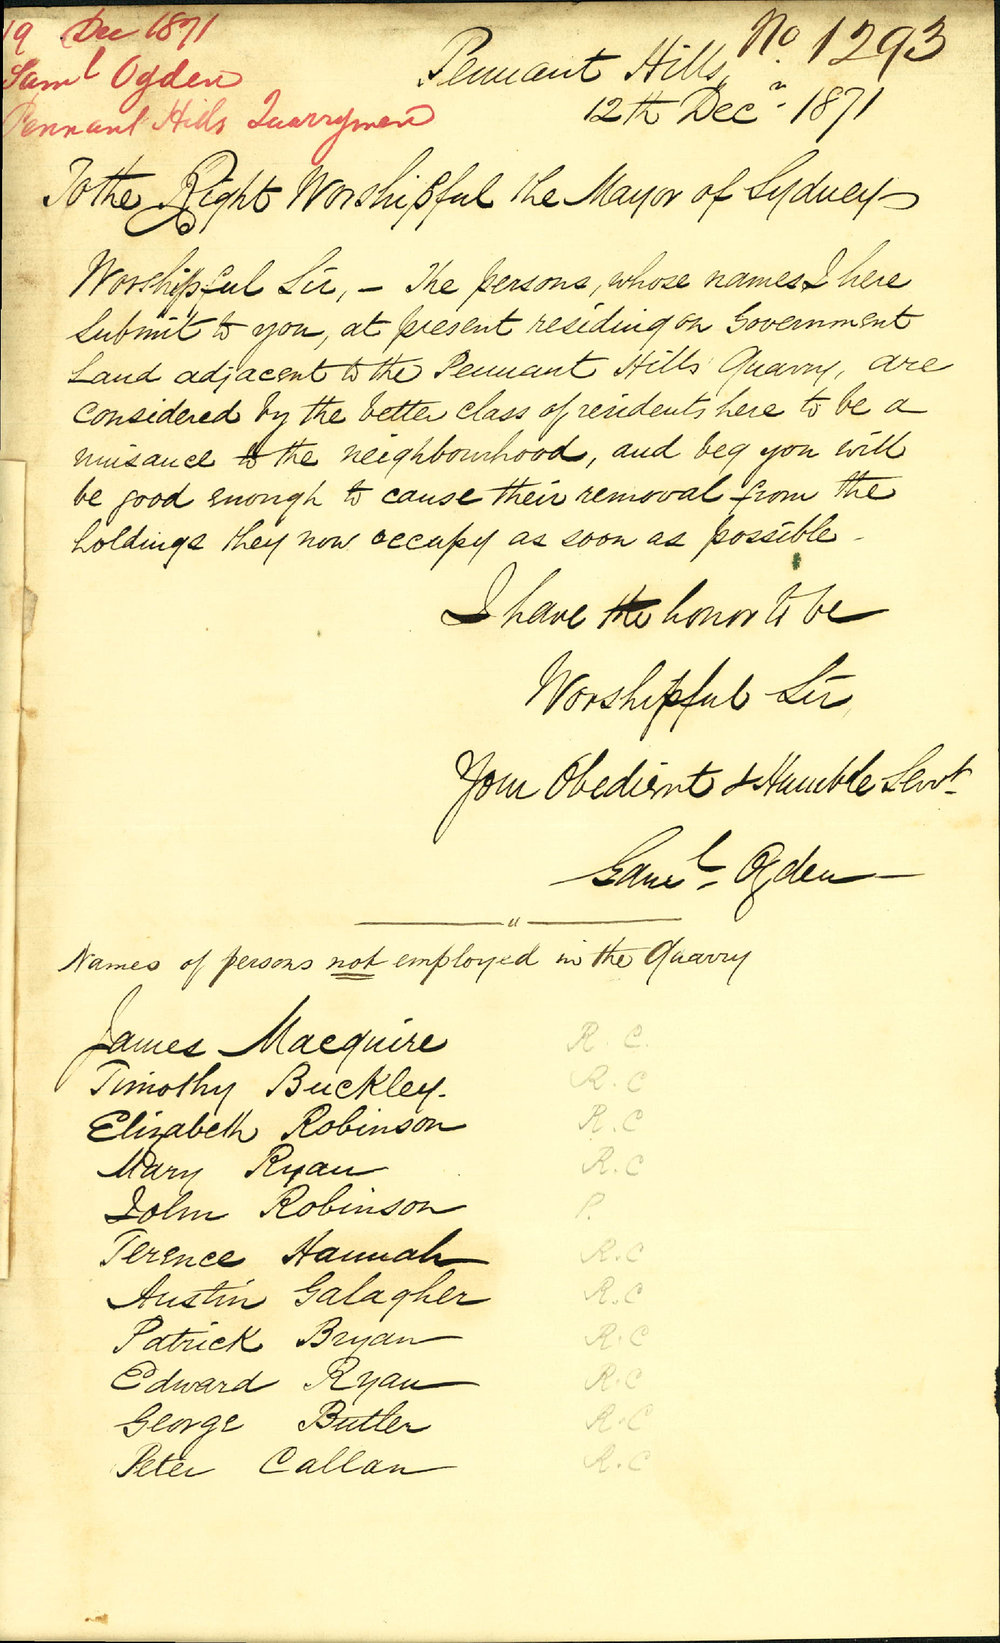 19 Dec 1871
Saml Ogden
Pennant Hills Quarrymen
No. 1293
Pennant Hills,
12th Decr. 1871
To the Right Worshipful the Mayor of Sydney
Worshipful Sir, – The persons, whose names I here
submit to you, at present residing on Government
Land adjacent to the Pennant Hills Quarry, are
considered by the better class of residents here to be a
nuisance to the neighbourhood, and beg you will
be good enough to cause their removal from the
holdings they now occupy as soon as possible –
I have the honor to be
Worshipful Sir,
Your Obedient & Humble Servt.
Saml. Ogden
Names of persons not employed in the Quarry
James Macquire R. C.
Timothy Buckley. R. C
Elizabeth Robinson R. C
Mary Ryan R. C
John Robinson P.
Terence Hannah R. C
Austin Galagher R. C
Patrick Bryan R. C
Edward Ryan R. C
George Butler R. C
Peter Callan R. C